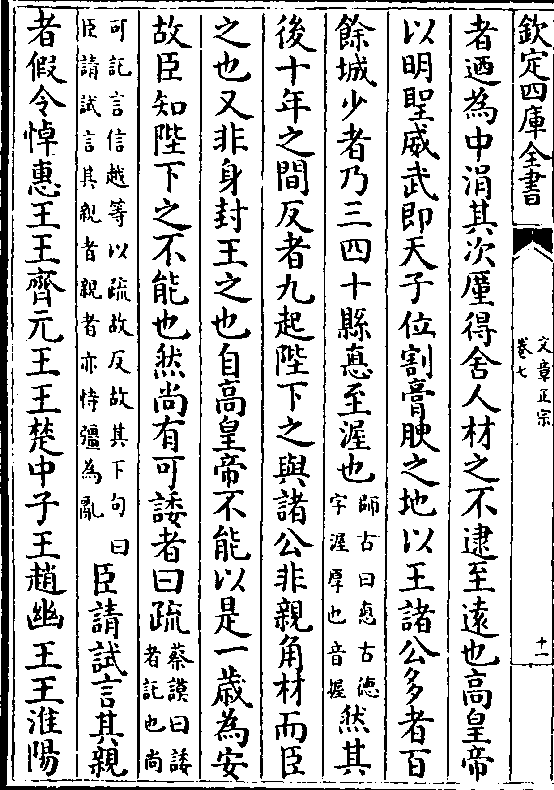 欽定四庫全書
文章正宗
卷七
十二
者迺為中涓其次廑得舍人材之不逮至遠也高皇帝
以明聖威武即天子位割膏腴之地以王諸公多者百
餘城少者乃三四十縣惪至渥也師古曰惪古德
字渥厚也音握然其
後十年之間反者九起陛下之與諸公非親角材而臣
之也又非身封王之也自高皇帝不能以是一歲為安
故臣知陛下之不能也然尚有可諉者曰疏蔡謨曰諉
者託也尚
可託言信越等以疏故反故其下句曰
臣請試言其親者親者亦恃彊為亂臣請試言其親
者假令悼惠王王齊元王王楚中子王趙幽王王淮陽